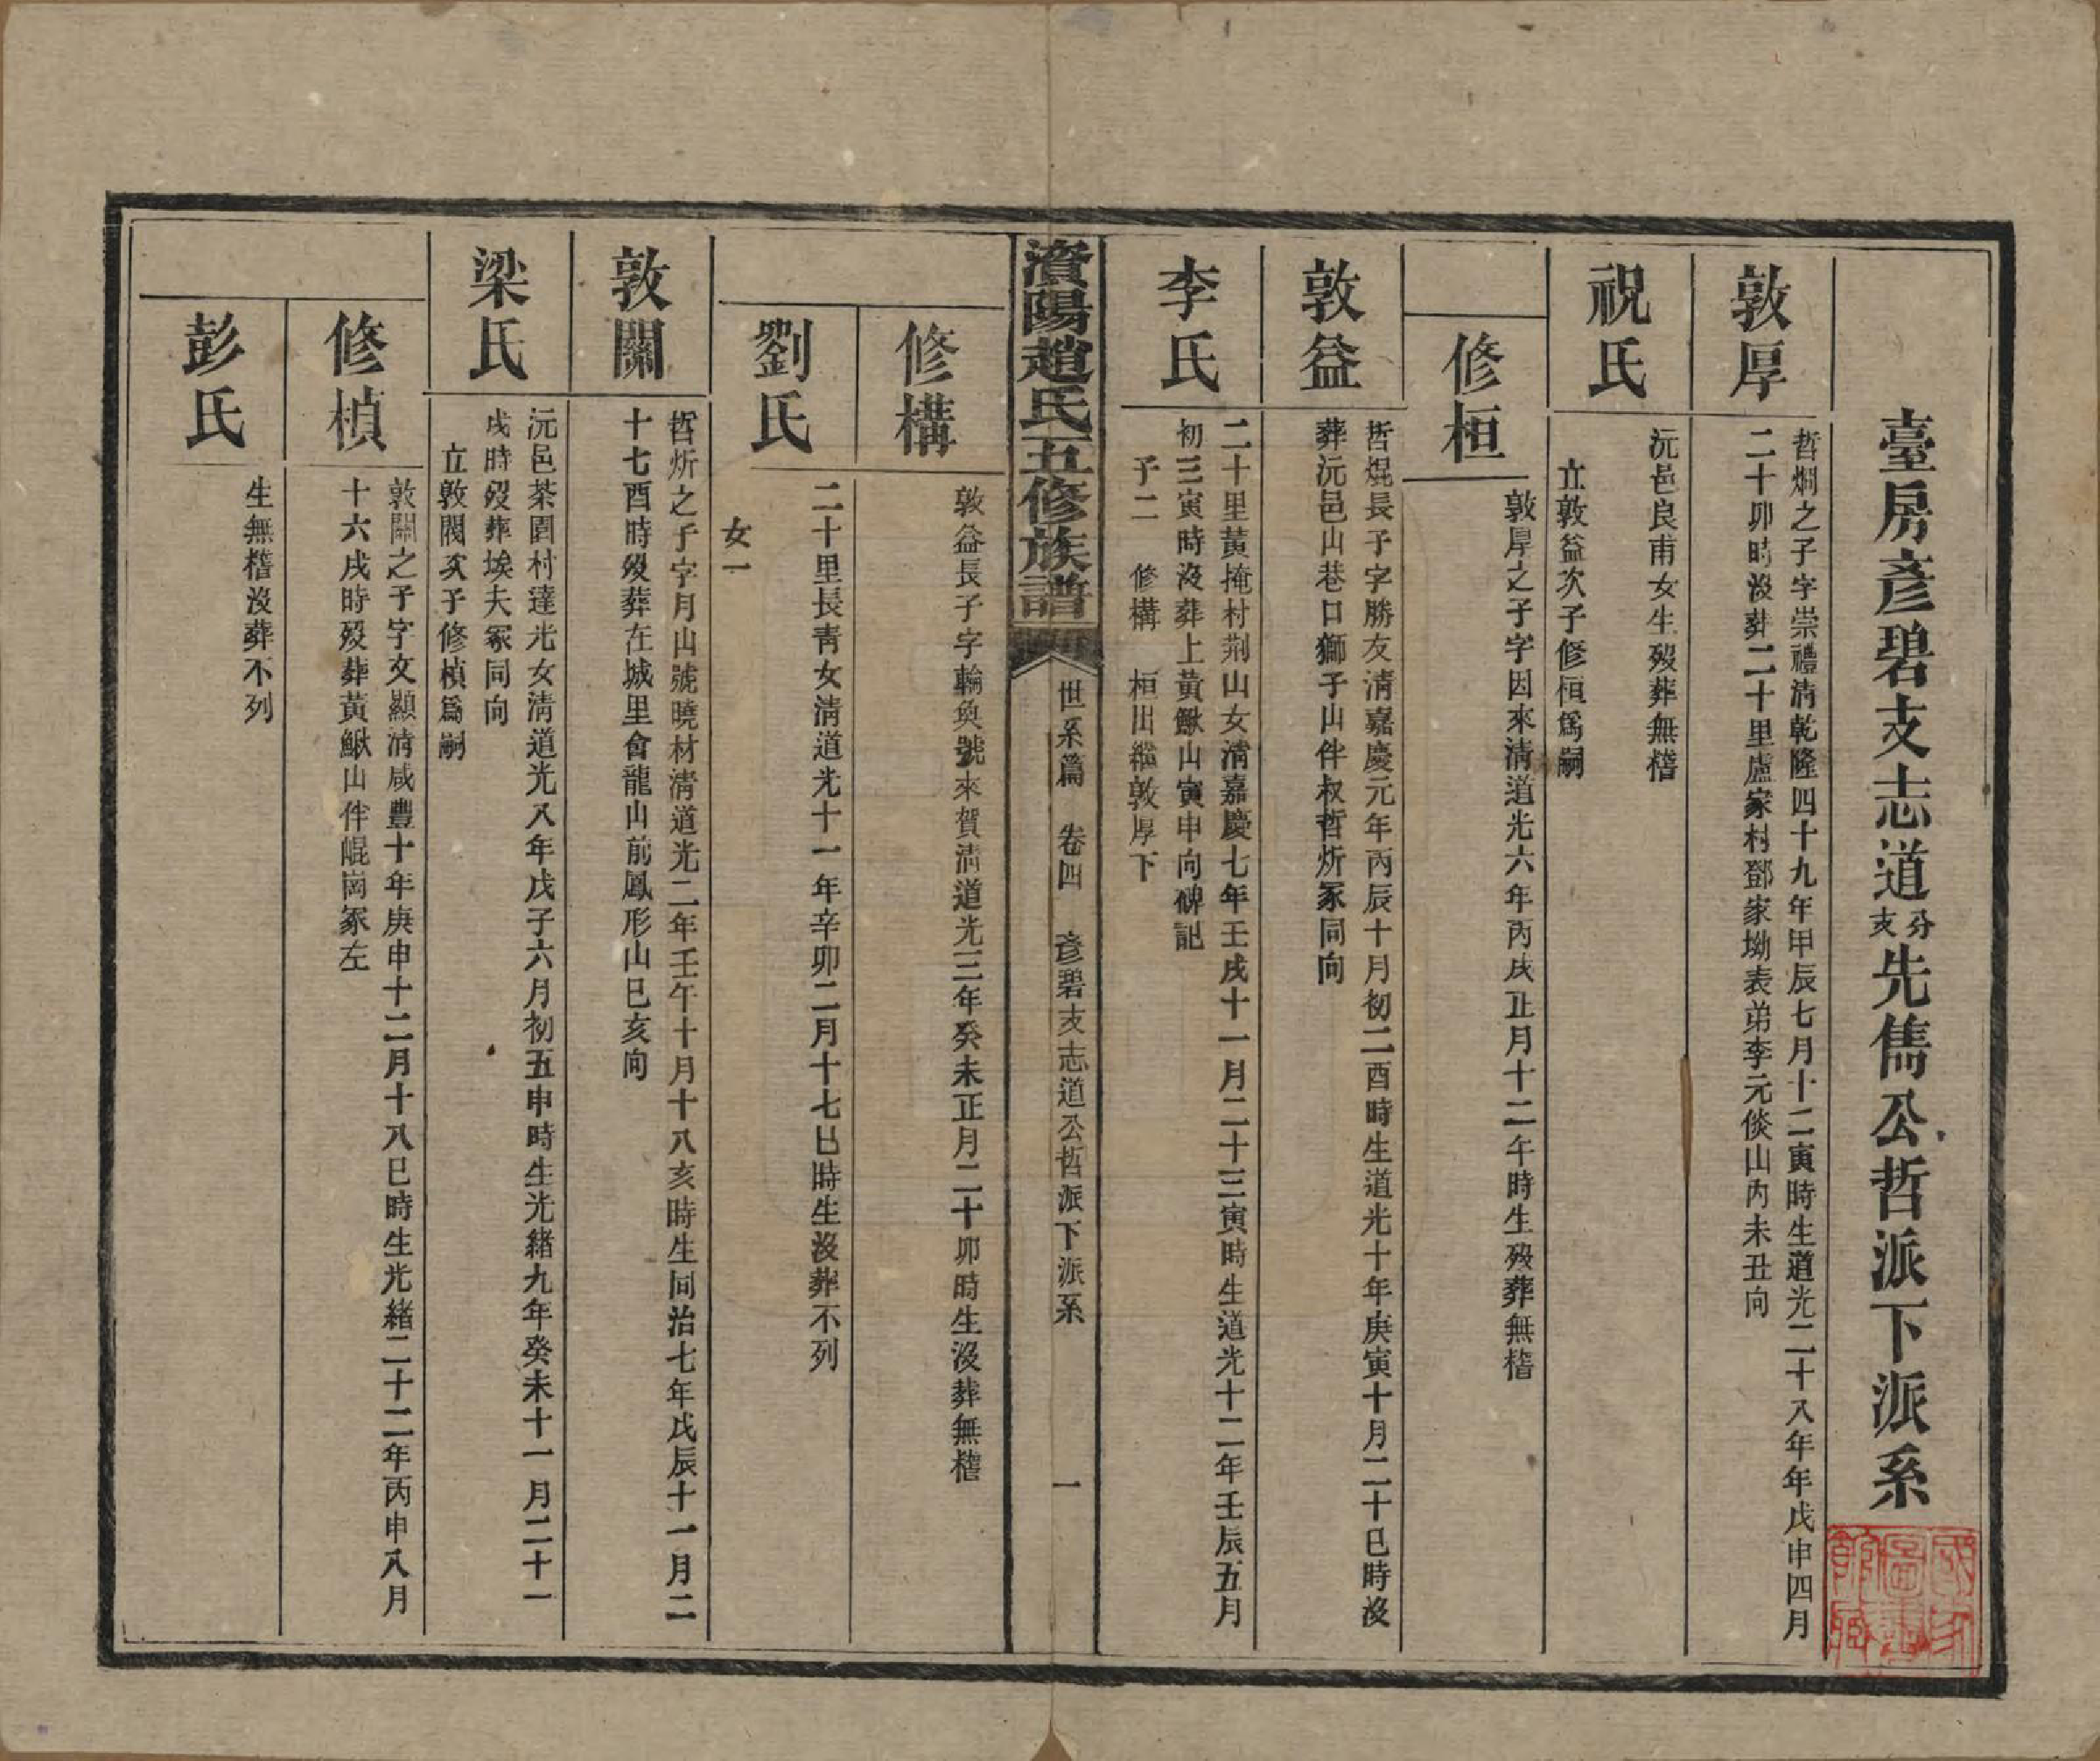 臺房彥碧支志道分支先儁公哲派下派系
敦厚
哲燗之子字崇禮清乾隆四十九年甲辰七月十二寅時生道光二十八年年戊申四月
二十卯時沒葬二十里盧家村鄧家坳表弟李元倓山內未丑向
祝氏
沅邑良甫女生歿葬無稽
立敦益次子修桓爲嗣
修桓
敦厚之子字因來清道光六年丙戌正月十二午時生歿葬無稽
敦益
哲焜長子字勝友清嘉慶元年丙辰十月初二酉時生道光十年庚寅十月二十巳時沒
葬沅邑山巷口獅子山伴叔哲炘冢同向
李氏
二十里黃掩村荆山女清嘉慶七年壬戌十一月二十三寅時生道光十二年壬辰五月
初三寅時沒葬上黃鰍山寅申向碑記
子二 修構 桓出繼敦厚下
資陽趙氏五修族譜
世系篇 卷四 彥碧支志道公哲派下派系 一
修構
敦益長子字輪奐號來賀清道光三年癸未正月二十卯時生沒葬無稽
劉氏
二十里長靑女清道光十一年辛卯二月十七巳時生沒葬不列
女一
敦關
哲炘之子字月山號曉材清道光二年壬午十月十八亥時生同治七年戊辰十一月二
十七酉時歿葬在城里會龍山前鳳形山巳亥向
梁氏
沅邑茶園村達光女清道光八年戊子六月初五申時生光緒九年癸未十一月二十一
戌時歿葬埃夫冢同向
立敦閥次子修楨爲嗣
修楨
敦關之子字文顯清咸豐十年庚申十二月十八巳時生光緒二十二年丙申八月
十六戌時歿葬黃鰍山伴崐崗冢左
彭氏
生無稽沒葬不列
國家圖書館藏